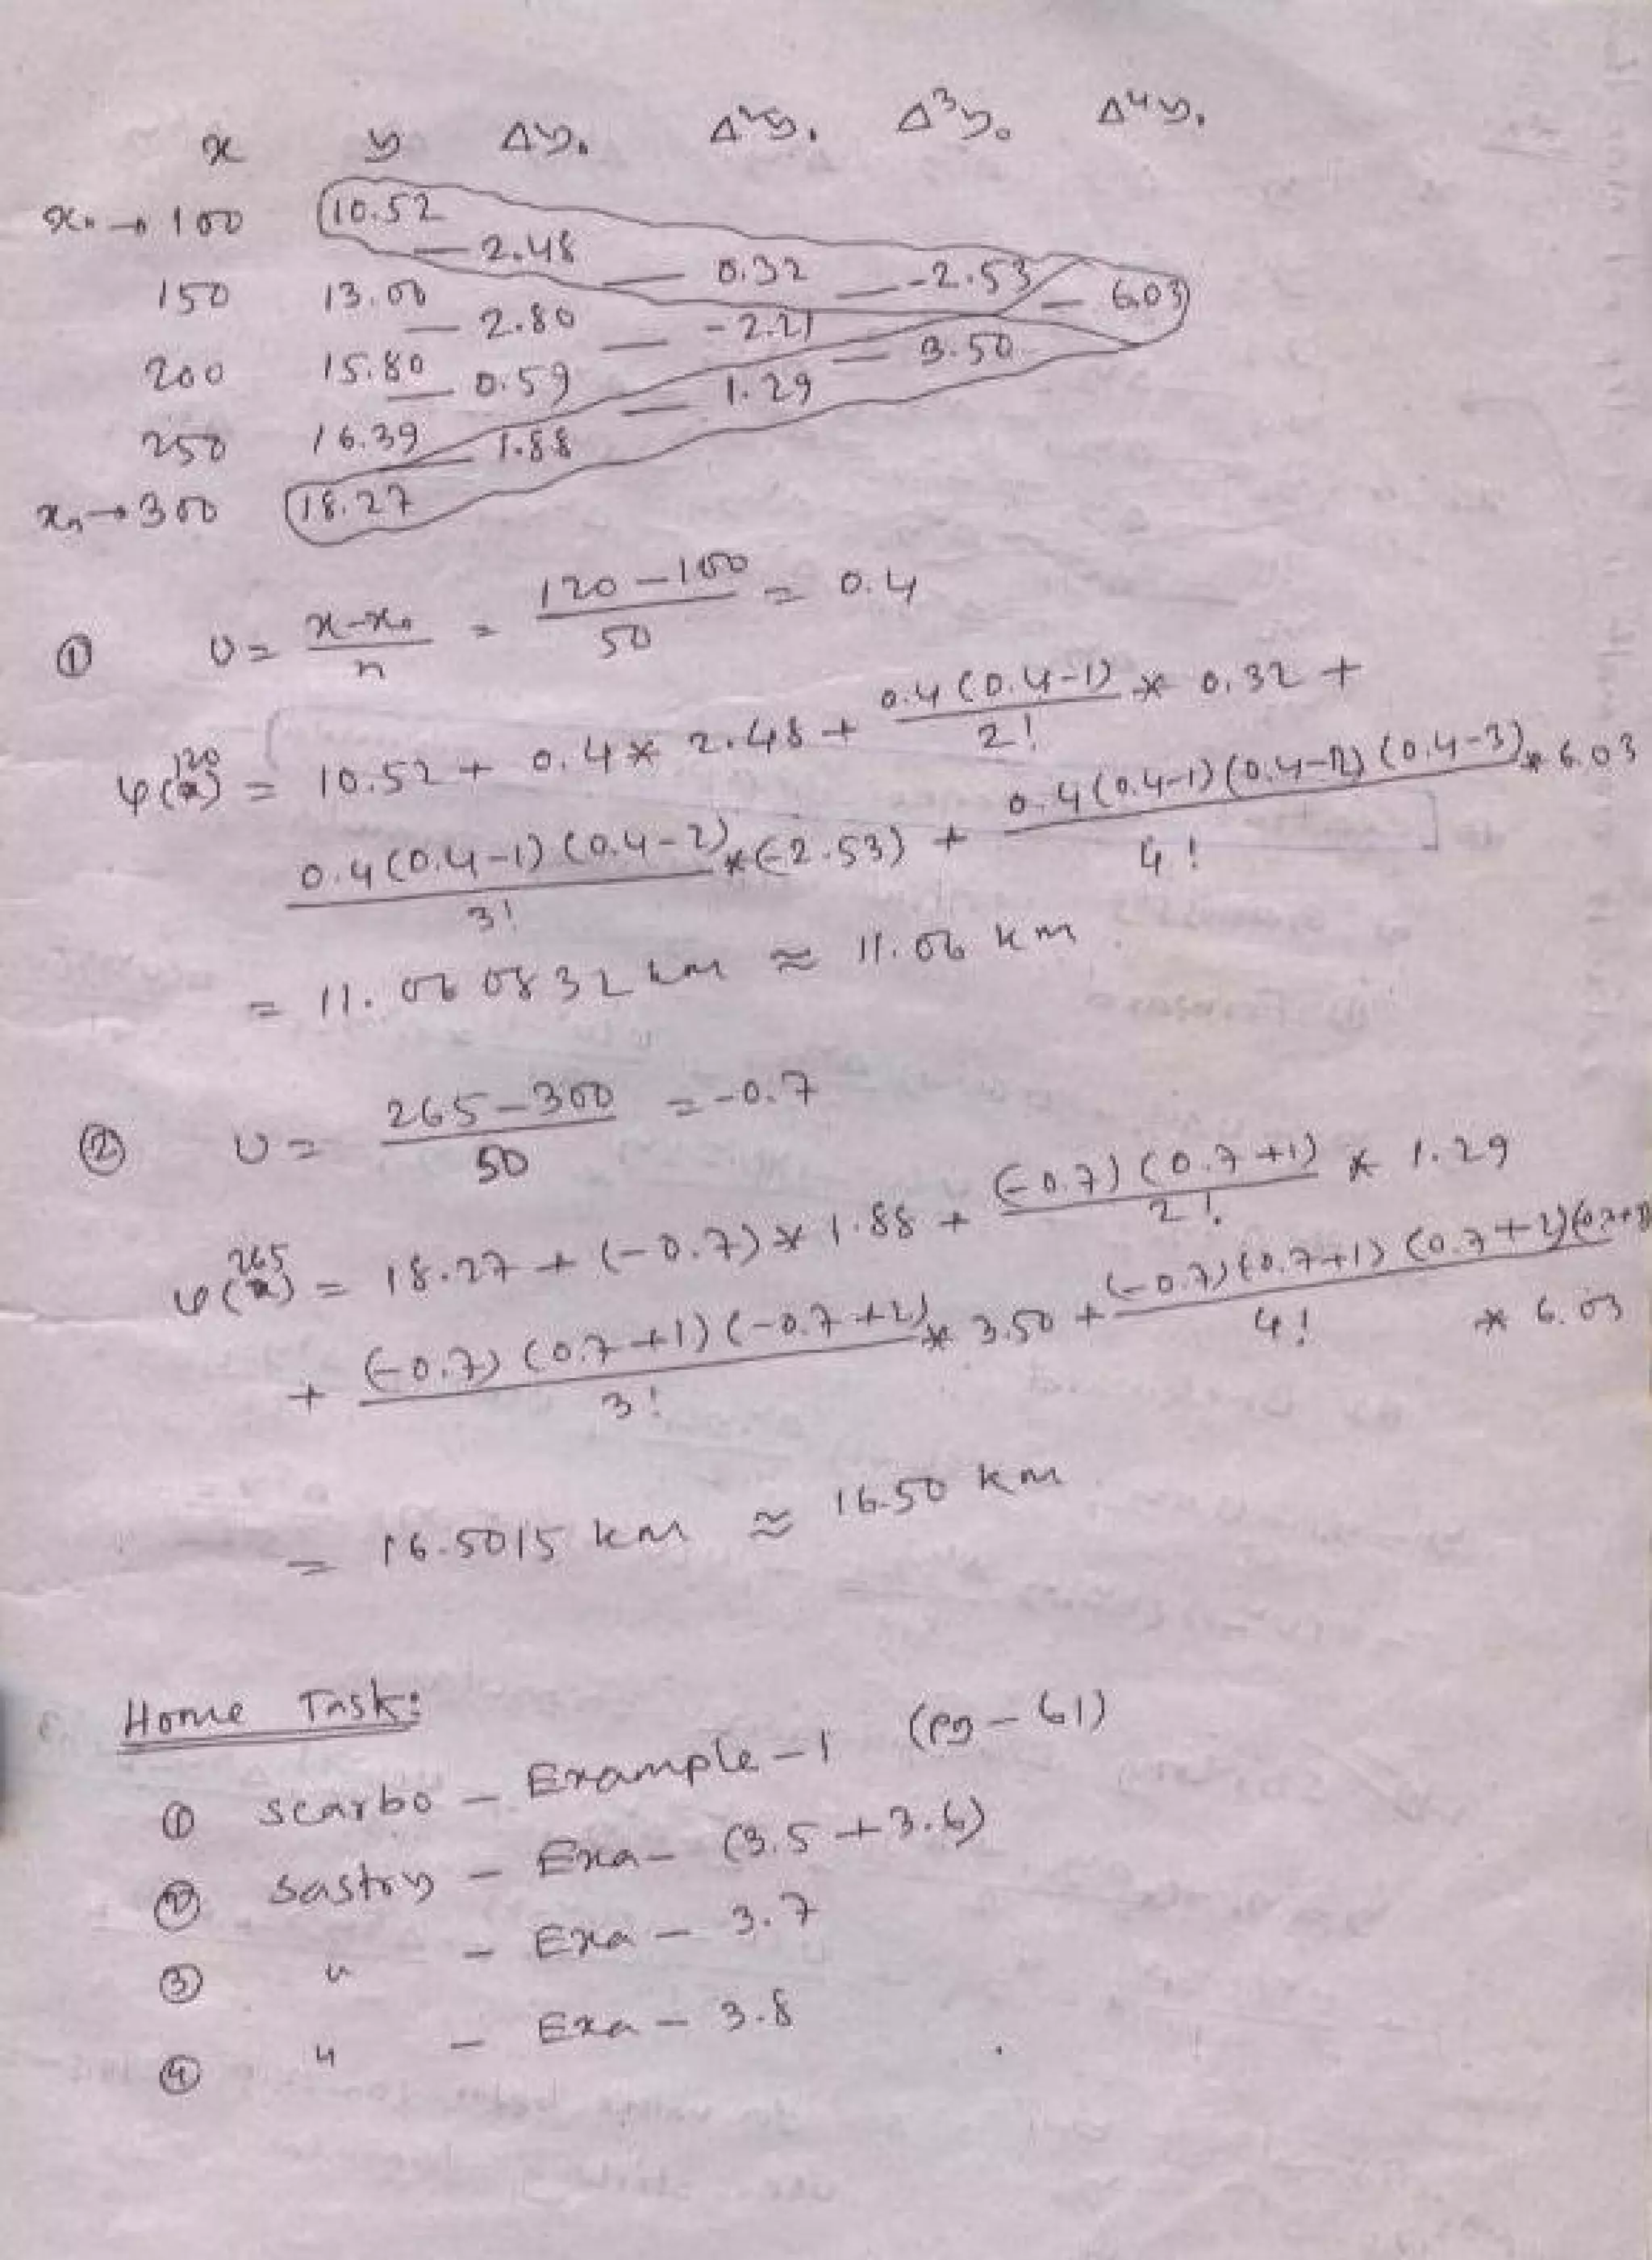 x y Δy₀ Δ²y₀ Δ³y₀ Δ⁴y₀
x₀ → 100 10.52
— 2.48
— 0.32 — -2.53
— 6.03
150 13.00
— 2.80 — -2.21
— 3.50
200 15.80
— 0.59 — 1.29
250 16.39
— 1.88
xₙ → 300 18.27
① U = (x-x₀)/n = (120-100)/50 = 0.4
φ(120) = 10.52 + 0.4 * 2.48 + 0.4(0.4-1)/2! * 0.32 +
0.4(0.4-1)(0.4-2)/3! * (-2.53) + 0.4(0.4-1)(0.4-2)(0.4-3)/4! * 6.03
= 11.060832 km ≈ 11.06 km
② U = (265-300)/50 = -0.7
φ(265) = 18.27 + (-0.7) * 1.88 + (-0.7)(0.7+1)/2! * 1.29
+ (-0.7)(0.7+1)(-0.7+2)/3! * 3.50 + (-0.7)(0.7+1)(0.7+2)(0.7+3)/4! * 6.03
= 16.5015 km ≈ 16.50 km
Home Task:
① scarbo - Example - 1 (pg - 61)
② sastry - Exa - (3.5 + 3.6)
③ " - Exa - 3.7
④ " - Exa - 3.8